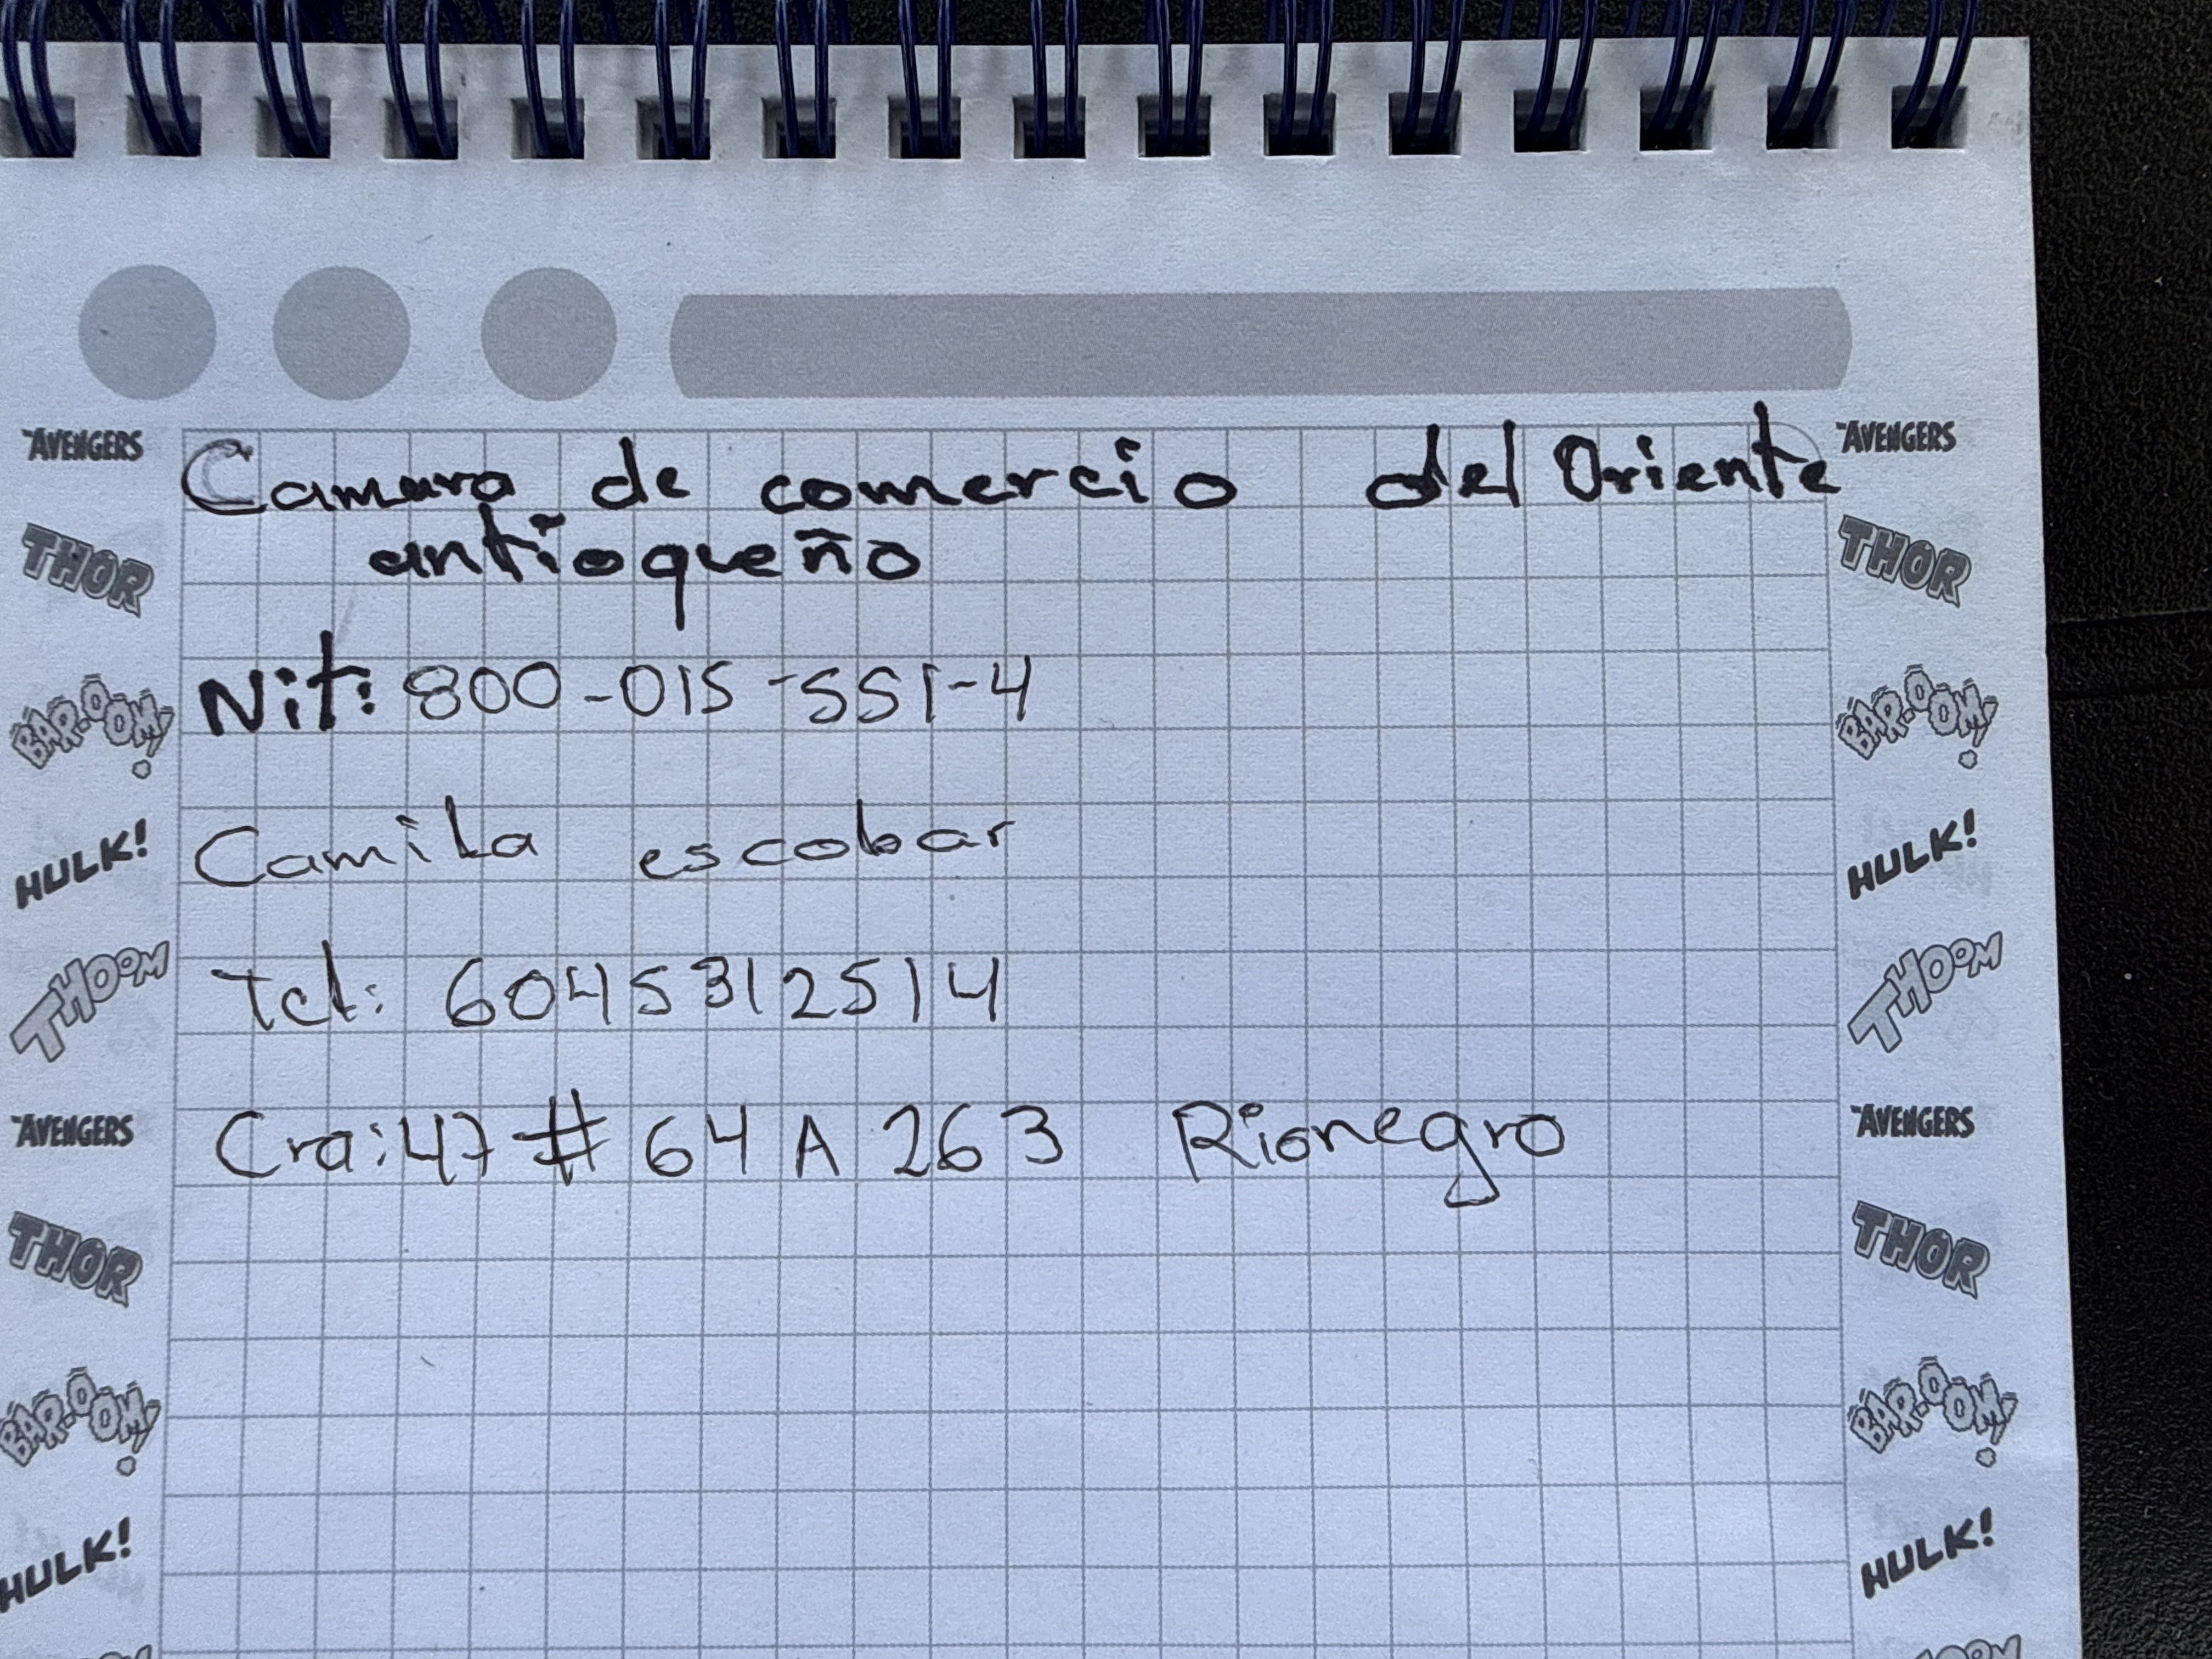 Camara de comercio del Oriente
antioqueño
Nit: 800-015-551-4
Camila escobar
Tel: 6045312514
Cra: 47 # 64 A 263 Rionegro
AVENGERS
THOR
BAR-OOOM!
HULK!
THOOM
AVENGERS
THOR
BAR-OOOM!
HULK!
AVENGERS
THOR
BAR-OOOM!
HULK!
THOOM
AVENGERS
THOR
BAR-OOOM!
HULK!
THOOM